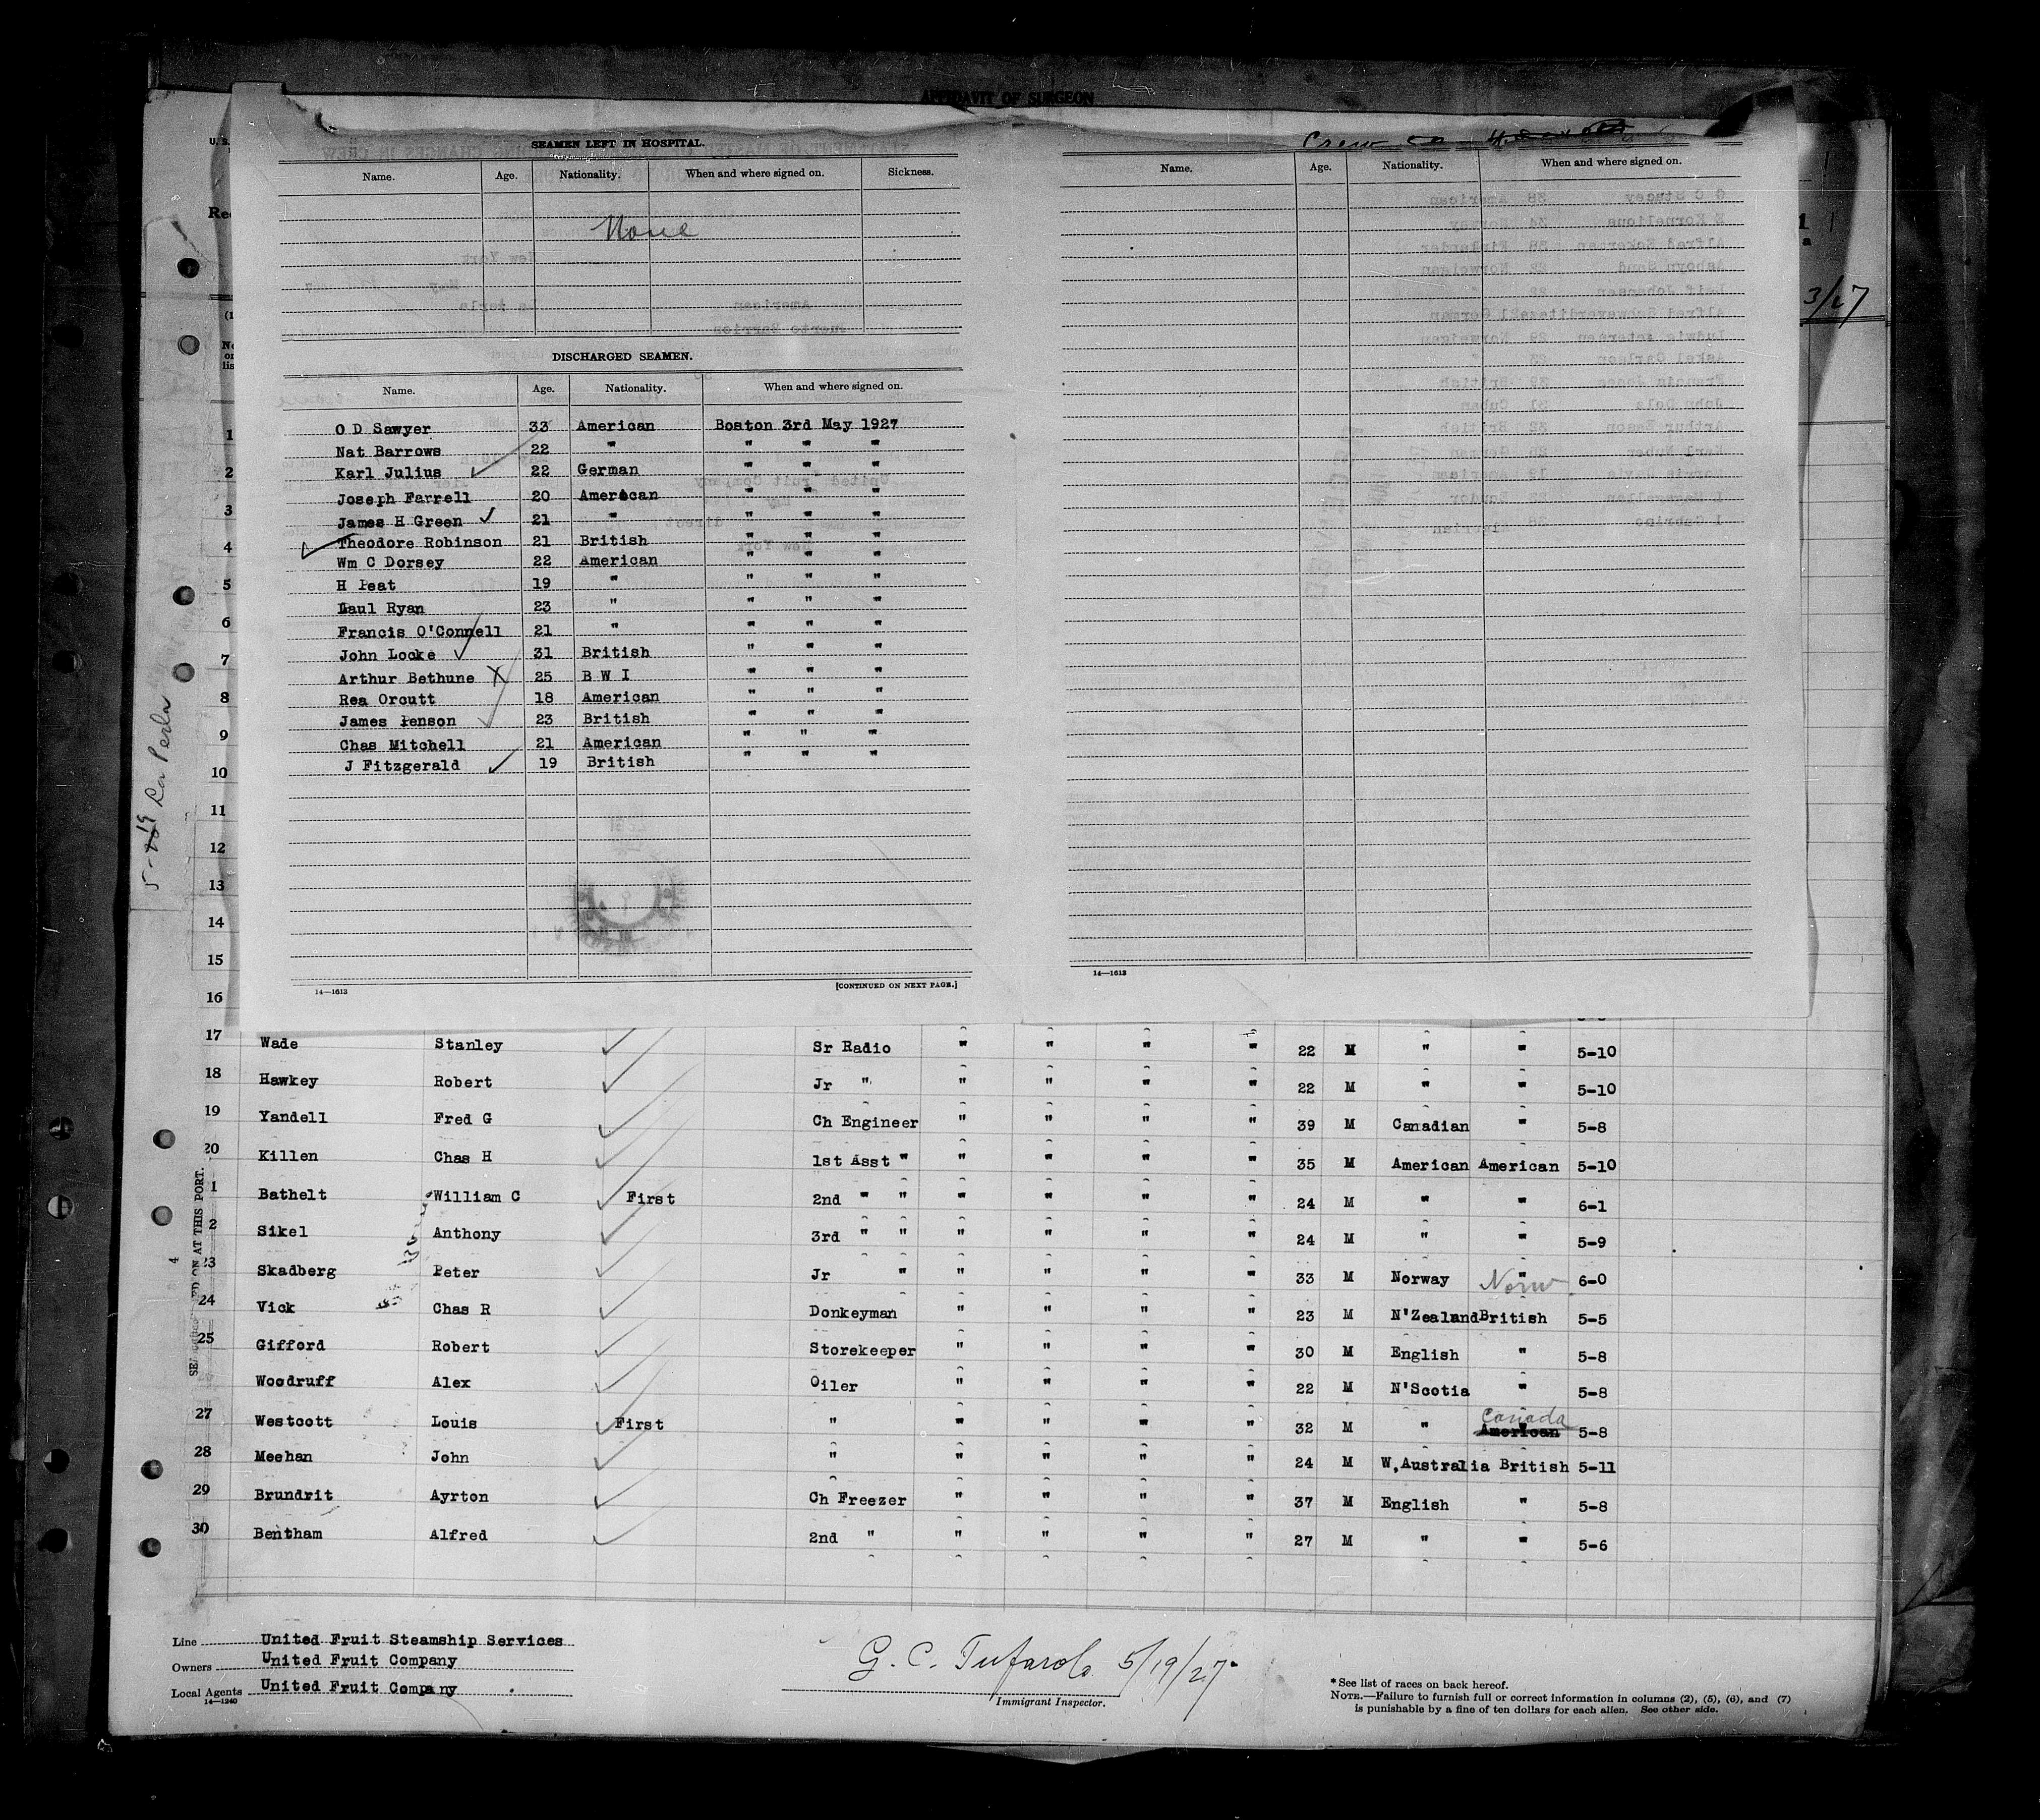 AFFIDAVIT OF SURGEON
SEAMEN LEFT IN HOSPITAL.
Name. Age. Nationality. When and where signed on. Sickness.
None
DISCHARGED SEAMEN.
Name. Age. Nationality. When and where signed on.
O D Sawyer 33 American Boston 3rd May 1927
Nat Barrows 22 " " " "
Karl Julius 22 German " " "
Joseph Farrell 20 American " " "
James H Green 21 " " " "
Theodore Robinson 21 British " " "
Wm C Dorsey 22 American " " "
H Peat 19 " " " "
Paul Ryan 23 " " " "
Francis O'Connell 21 " " " "
John Locke 31 British " " "
Arthur Bethune 25 B W I " " "
Rea Orcutt 18 American " " "
James Penson 23 British " " "
Chas Mitchell 21 American " " "
J Fitzgerald 19 British " " "
14—1613 [CONTINUED ON NEXT PAGE.]
Crew
Name. Age. Nationality. When and where signed on.
14—1613
3/27
5-19 La Perla
1
2
3
4
5
6
7
8
9
10
11
12
13
14
15
16
17 Wade Stanley Sr Radio " " " " 22 M " " 5-10
18 Hawkey Robert Jr " " " " " 22 M " " 5-10
19 Yandell Fred G Ch Engineer " " " " 39 M Canadian " 5-8
20 Killen Chas H 1st Asst " " " " " 35 M American American 5-10
1 Bathelt William C First 2nd " " " " " " 24 M " " 6-1
2 Sikel Anthony 3rd " " " " " " 24 M " " 5-9
23 Skadberg Peter Jr " " " " " 33 M Norway " Norw 6-0
24 Vick Chas R Donkeyman " " " " 23 M N'Zealand British 5-5
25 Gifford Robert Storekeeper " " " " 30 M English " 5-8
Woodruff Alex Oiler " " " " 22 M N'Scotia " 5-8
27 Westcott Louis First " " " " " 32 M " American Canada 5-8
28 Meehan John " " " " " 24 M W,Australia British 5-11
29 Brundrit Ayrton Ch Freezer " " " " 37 M English " 5-8
30 Bentham Alfred 2nd " " " " " 27 M " " 5-6
Line United Fruit Steamship Services
Owners United Fruit Company
Local Agents United Fruit Company
14—1240
G. C. Tufarolo 5/19/27
Immigrant Inspector.
*See list of races on back hereof.
NOTE.—Failure to furnish full or correct information in columns (2), (5), (6), and (7)
is punishable by a fine of ten dollars for each alien. See other side.